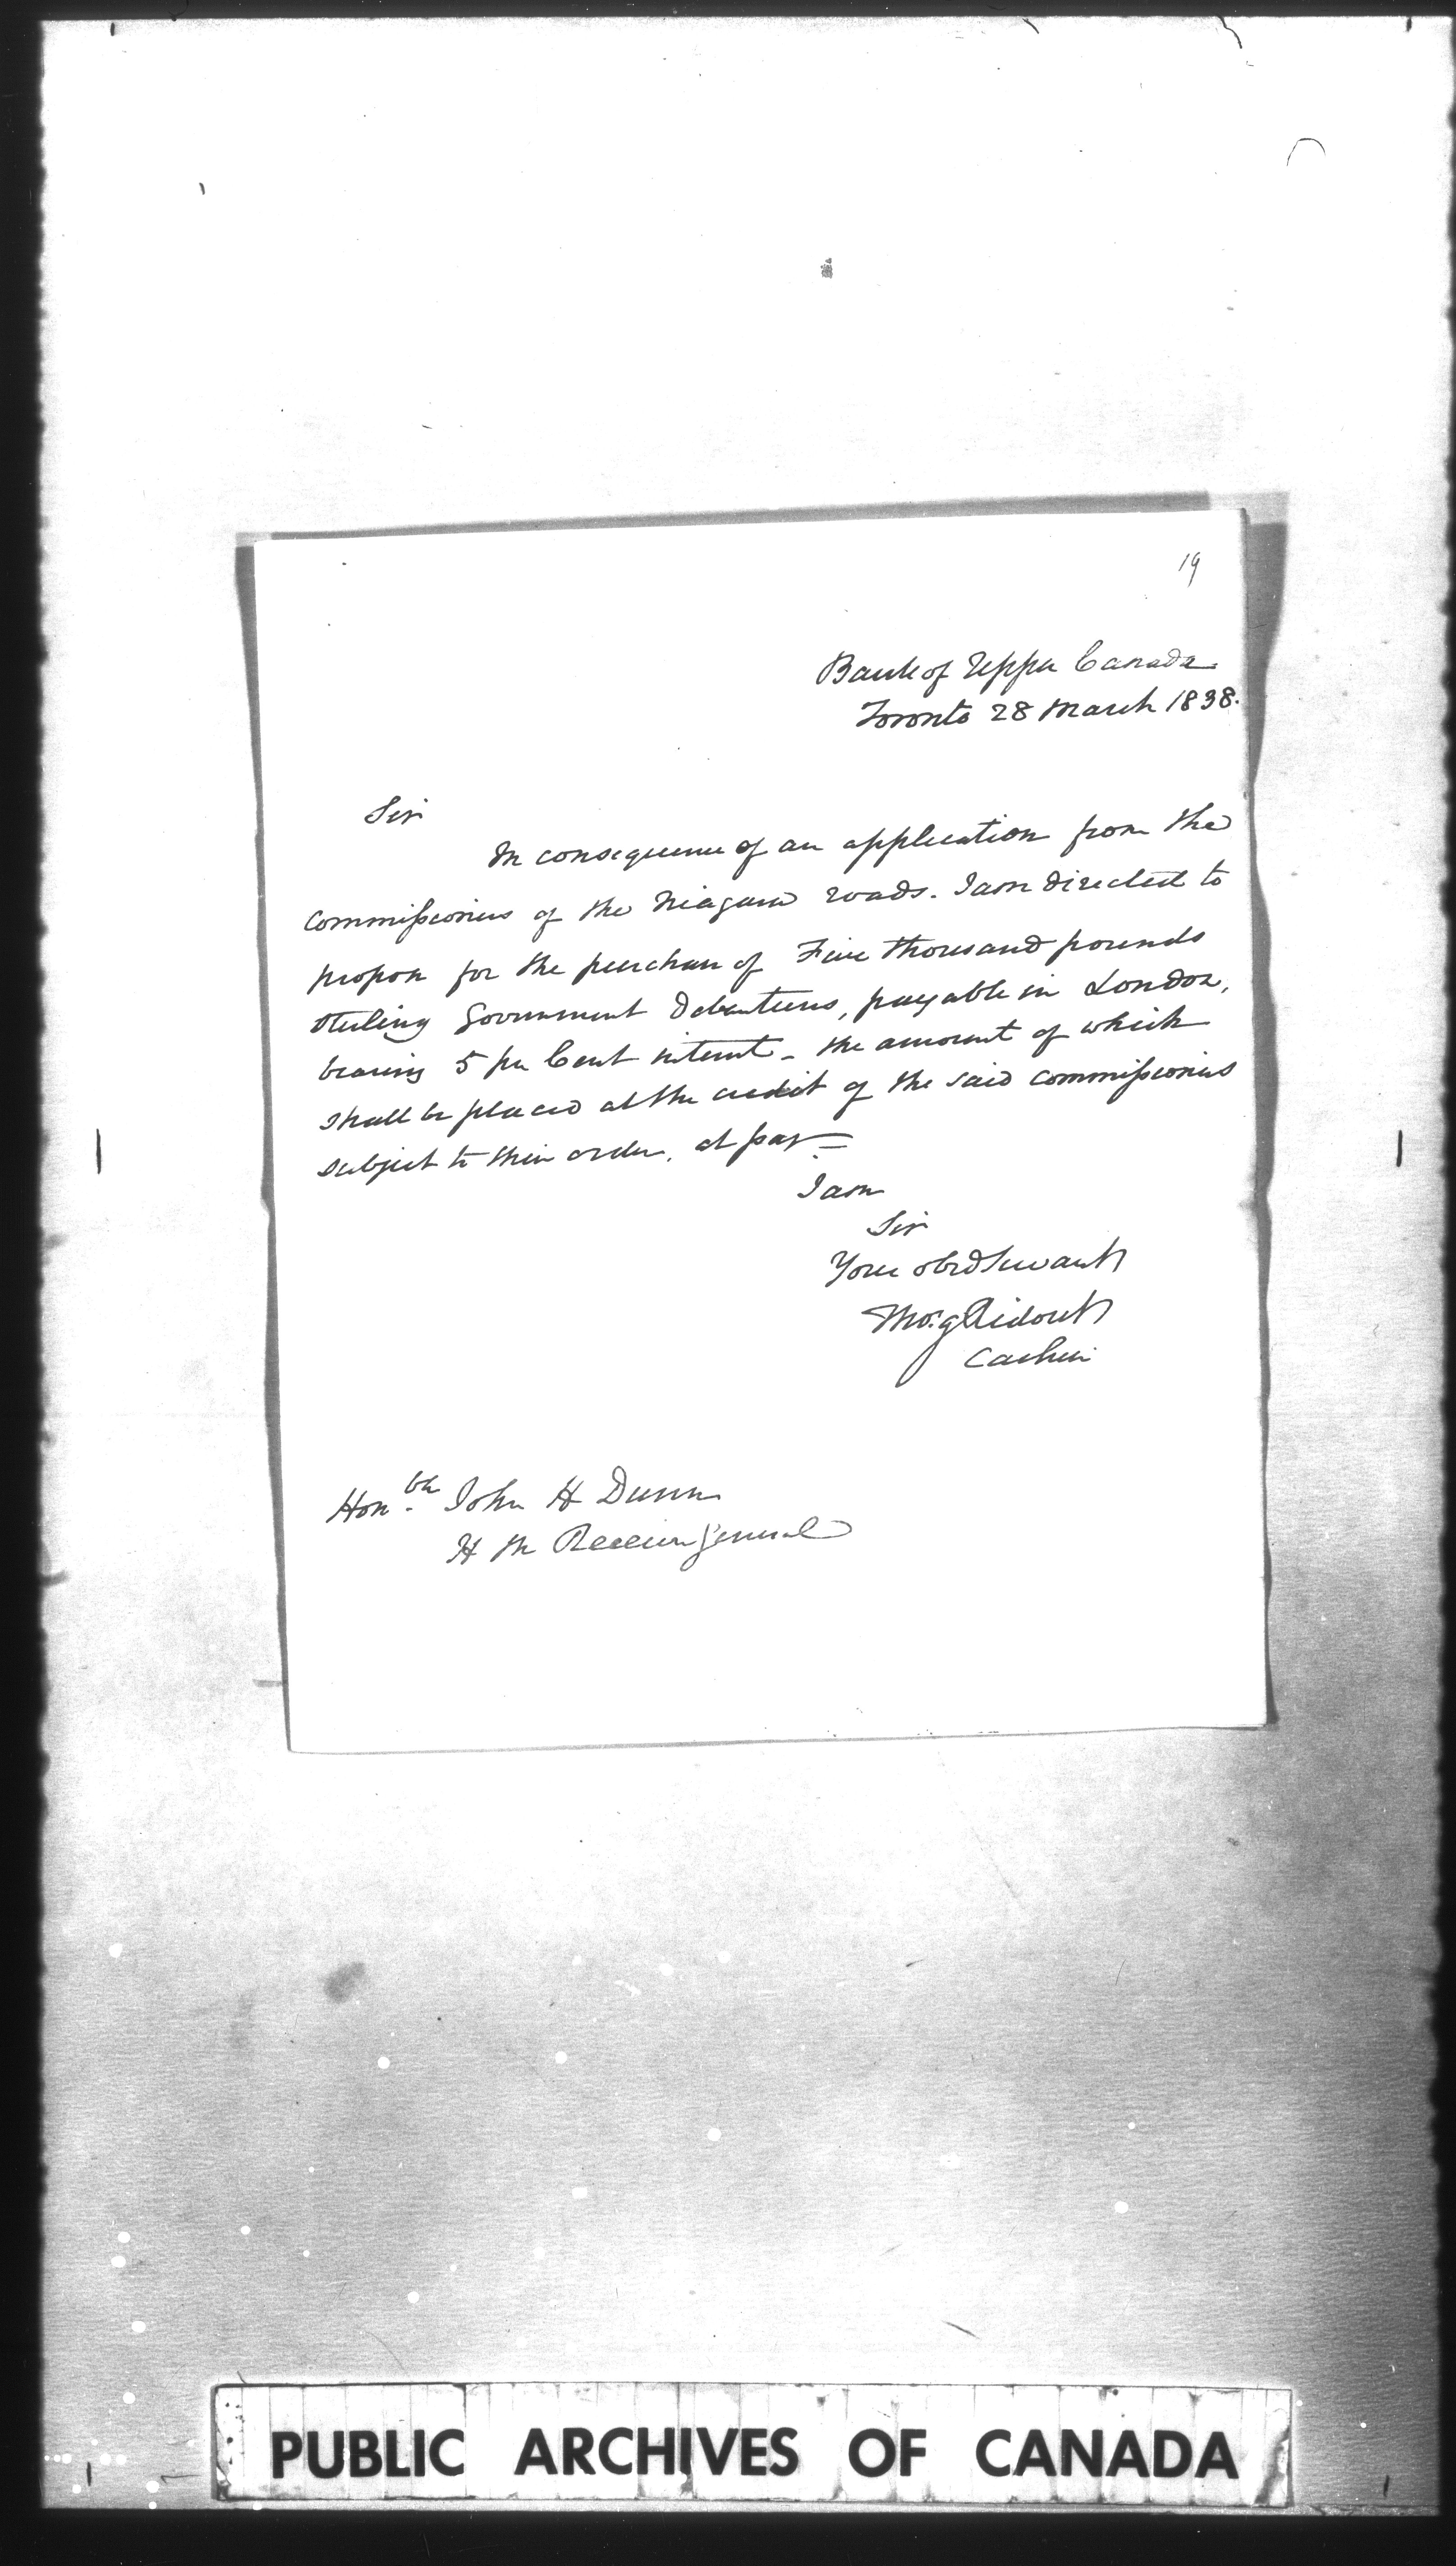 19
Bank of Upper Canada
Toronto 28 March 1838.
Sir
In consequence of an application from the
Commissioners of the Niagara roads. I am directed to
propose for the purchase of Five thousand pounds
Sterling Government Debentures, payable in London,
bearing 5 per Cent interest - the amount of which
shall be placed at the credit of the said Commissioners
subject to their order, at par =
I am
Sir
Your obed Servant
Thos. G Ridout
Cashier
Honble John H Dunn
H M Receiver General
PUBLIC ARCHIVES OF CANADA